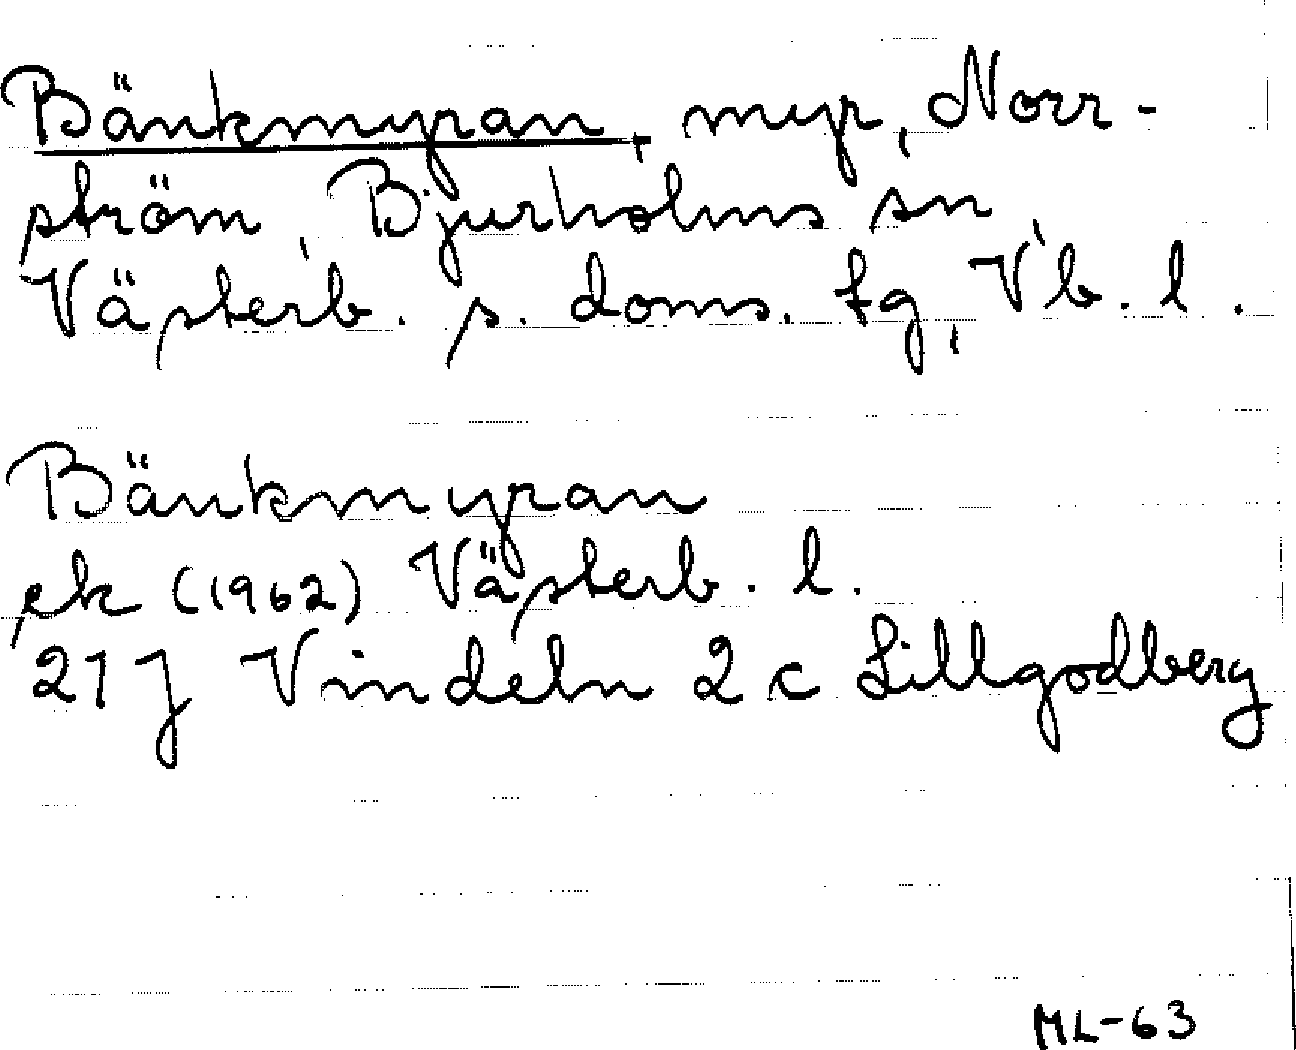 Bänkmyran, myr, Norr-
ström, Bjurholms sn,
Västerb. s. doms. tg, Vb. l.
Bänkmyran
ek (1962) Västerb. l.
21 J Vindeln 2 c Lillgodberg
ML-63